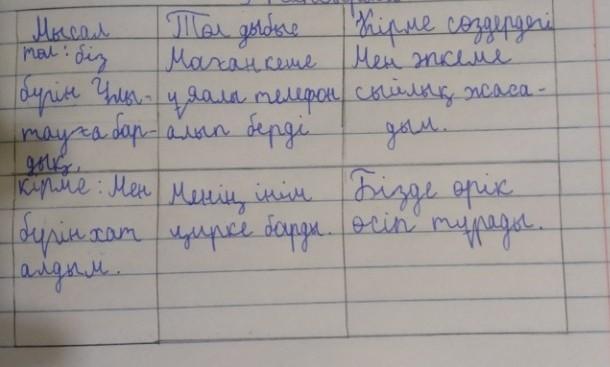 Мысал
Төл дыбыс
Кірме сөздердегі
төл: біз
бүгін Ұлы-
тауға бар-
дық.
Маған кеше
ұялы телефон
алып берді
Мен әкеме
сыйлық жаса-
дым.
кірме: Мен
бүгін хат
алдым.
Менің інім
цирке барды.
Бізде өрік
өсіп тұрады.